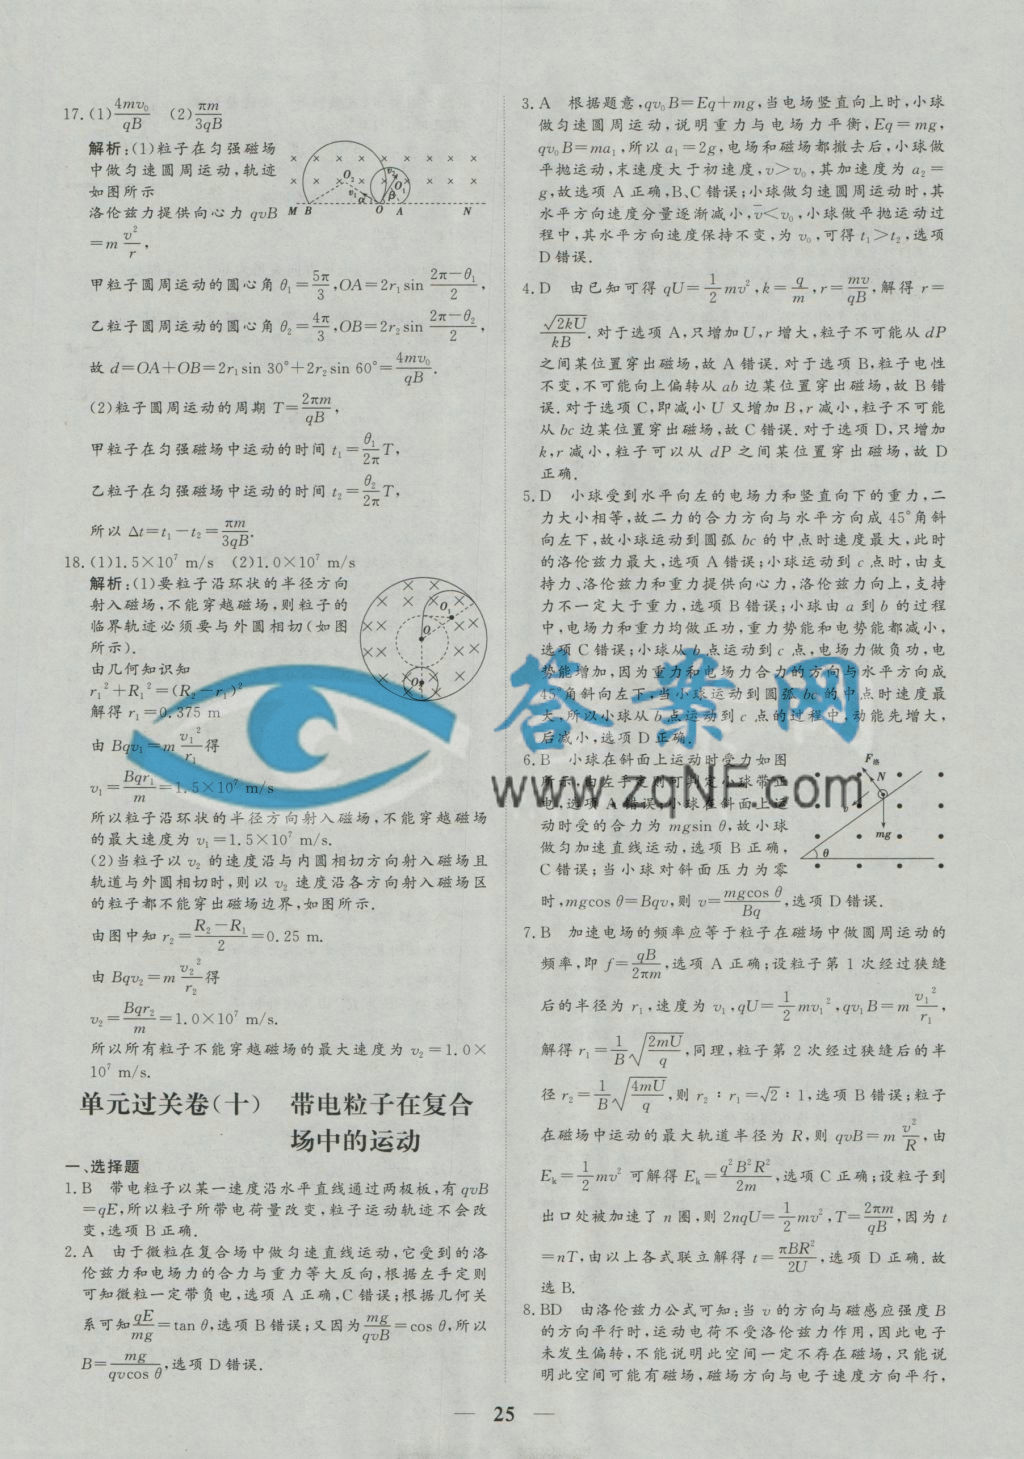 17. (1) 4mv₀/qB (2) πm/3qB
解析:(1)粒子在匀强磁场
中做匀速圆周运动,轨迹
如图所示
洛伦兹力提供向心力 qvB
=m v²/r,
M B O A N
O₂ O₁ v₁ v₂ α β
甲粒子圆周运动的圆心角 θ₁=5π/3,OA=2r₁sin (2π-θ₁)/2,
乙粒子圆周运动的圆心角 θ₂=4π/3,OB=2r₂sin (2π-θ₂)/2,
故 d=OA+OB=2r₁sin 30°+2r₂sin 60°=4mv₀/qB.
(2)粒子圆周运动的周期 T=2πm/qB,
甲粒子在匀强磁场中运动的时间 t₁=θ₁/2π T,
乙粒子在匀强磁场中运动的时间 t₂=θ₂/2π T,
所以 Δt=t₁-t₂=πm/3qB.
18. (1)1.5×10⁷ m/s (2)1.0×10⁷ m/s
解析:(1)要粒子沿环状的半径方向
射入磁场,不能穿越磁场,则粒子的
临界轨迹必须要与外圆相切(如图
所示).
由几何知识知
r₁²+R₁²=(R₂-r₁)²
解得 r₁=0.375 m
由 Bqv₁=m v₁²/r₁ 得
v₁=Bqr₁/m=1.5×10⁷ m/s
所以粒子沿环状的半径方向射入磁场,不能穿越磁场
的最大速度为 v₁=1.5×10⁷ m/s.
(2)当粒子以 v₂ 的速度沿与内圆相切方向射入磁场且
轨道与外圆相切时,则以 v₂ 速度沿各方向射入磁场区
的粒子都不能穿出磁场边界,如图所示.
由图中知 r₂=(R₂-R₁)/2=0.25 m.
由 Bqv₂=m v₂²/r₂ 得
v₂=Bqr₂/m=1.0×10⁷ m/s.
所以所有粒子不能穿越磁场的最大速度为 v₂=1.0×
10⁷ m/s.
单元过关卷(十) 带电粒子在复合
场中的运动
一、选择题
1. B 带电粒子以某一速度沿水平直线通过两极板,有 qvB
=qE,所以粒子所带电荷量改变,粒子运动轨迹不会改
变,选项 B 正确.
2. A 由于微粒在复合场中做匀速直线运动,它受到的洛
伦兹力和电场力的合力与重力等大反向,根据左手定则
可知微粒一定带负电,选项 A 正确,C 错误;根据几何关
系可知 qE/mg=tan θ,选项 B 错误;又因为 mg/qvB=cos θ,所以
B=mg/qvcos θ,选项 D 错误.
3. A 根据题意,qv₀B=Eq+mg,当电场竖直向上时,小球
做匀速圆周运动,说明重力与电场力平衡,Eq=mg,
qv₀B=ma₁,所以 a₁=2g,电场和磁场都撤去后,小球做
平抛运动,末速度大于初速度,v>v₀,其加速度为 a₂=
g,故选项 A 正确,B、C 错误;小球做匀速圆周运动时,其
水平方向速度分量逐渐减小,v̄<v₀,小球做平抛运动过
程中,其水平方向速度保持不变,为 v₀,可得 t₁>t₂,选项
D 错误.
4. D 由已知可得 qU=1/2 mv²,k=q/m,r=mv/qB,解得 r=
√2kU/kB.对于选项 A,只增加 U,r 增大,粒子不可能从 dP
之间某位置穿出磁场,故 A 错误.对于选项 B,粒子电性
不变,不可能向上偏转从 ab 边某位置穿出磁场,故 B 错
误.对于选项 C,即减小 U 又增加 B,r 减小,粒子不可能
从 bc 边某位置穿出磁场,故 C 错误.对于选项 D,只增加
k,r 减小,粒子可以从 dP 之间某位置穿出磁场,故 D
正确.
5. D 小球受到水平向左的电场力和竖直向下的重力,二
力大小相等,故二力的合力方向与水平方向成 45°角斜
向左下,故小球运动到圆弧 bc 的中点时速度最大,此时
的洛伦兹力最大,选项 A 错误;小球运动到 c 点时,由支
持力、洛伦兹力和重力提供向心力,洛伦兹力向上,支持
力不一定大于重力,选项 B 错误;小球由 a 到 b 的过程
中,电场力和重力均做正功,重力势能和电势能都减小,
选项 C 错误;小球从 b 点运动到 c 点,电场力做负功,电
势能增加,因为重力和电场力合力的方向与水平方向成
45°角斜向左下,当小球运动到圆弧 bc 的中点时速度最
大,所以小球从 b 点运动到 c 点的过程中,动能先增大,
后减小,选项 D 正确.
6. B 小球在斜面上运动时受力如图
所示,由左手定则可判定小球带正
电,选项 A 错误;小球在斜面上运
动时受的合力为 mgsin θ,故小球
做匀加速直线运动,选项 B 正确,
C 错误;当小球对斜面压力为零
时,mgcos θ=Bqv,则 v=mgcos θ/Bq,选项 D 错误.
F洛 N v mg θ
7. B 加速电场的频率应等于粒子在磁场中做圆周运动的
频率,即 f=qB/2πm,选项 A 正确;设粒子第 1 次经过狭缝
后的半径为 r₁,速度为 v₁,qU=1/2 mv₁²,qv₁B=m v₁²/r₁,
解得 r₁=1/B √(2mU/q),同理,粒子第 2 次经过狭缝后的半
径 r₂=1/B √(4mU/q),则 r₂∶r₁=√2∶1,选项 B 错误;粒子
在磁场中运动的最大轨道半径为 R,则 qvB=m v²/R,由
Eₖ=1/2 mv² 可解得 Eₖ=q²B²R²/2m,选项 C 正确;设粒子到
出口处被加速了 n 圈,则 2nqU=1/2 mv²,T=2πm/qB,因为 t
=nT,由以上各式联立解得 t=πBR²/2U,选项 D 正确.故
选 B.
8. BD 由洛伦兹力公式可知:当 v 的方向与磁感应强度 B
的方向平行时,运动电荷不受洛伦兹力作用,因此电子
未发生偏转,不能说明此空间一定不存在磁场,只能说
明此空间可能有磁场,磁场方向与电子速度方向平行,
答案网
www.zqNF.com
— 25 —